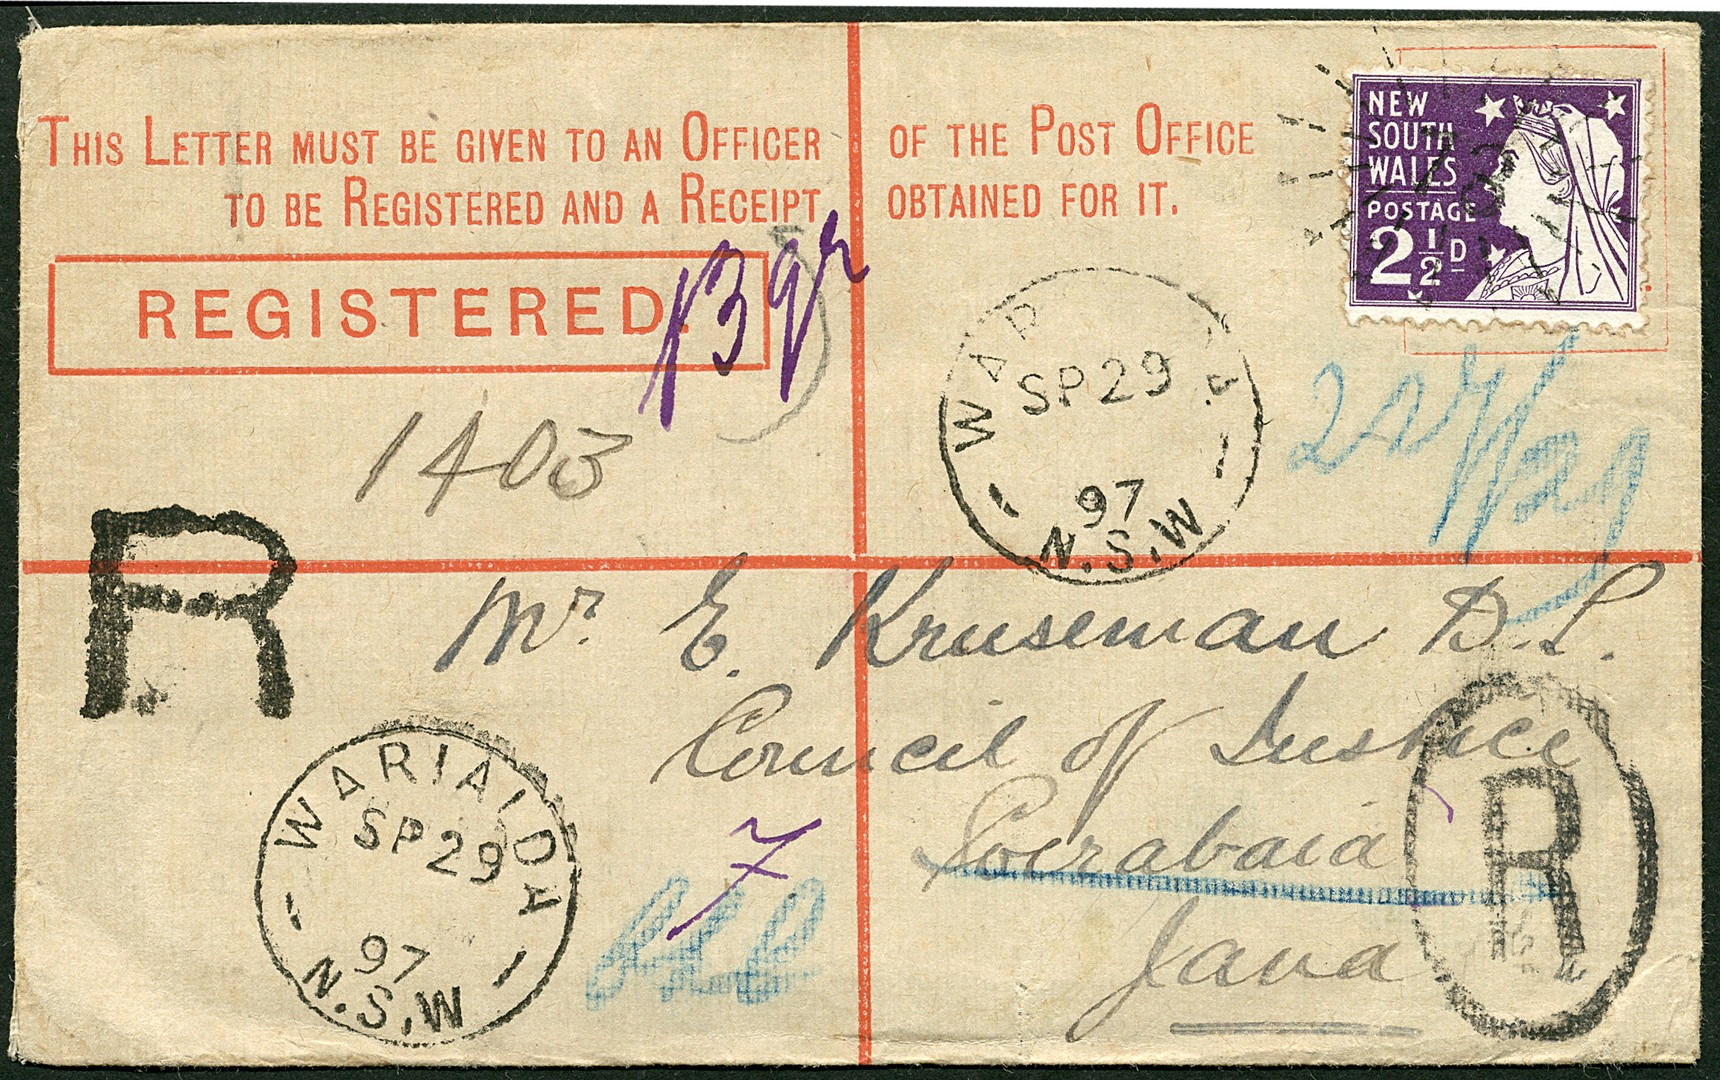 THIS LETTER MUST BE GIVEN TO AN OFFICER OF THE POST OFFICE
TO BE REGISTERED AND A RECEIPT OBTAINED FOR IT.
REGISTERED.
NEW
SOUTH
WALES
POSTAGE
2½D
1403
SP 29
97
N.S.W
R
Mr. E. Kruseman D. L.
Council of Justice
Soerabaia
Java
WARIALDA
SP 29
97
N.S.W
7
R